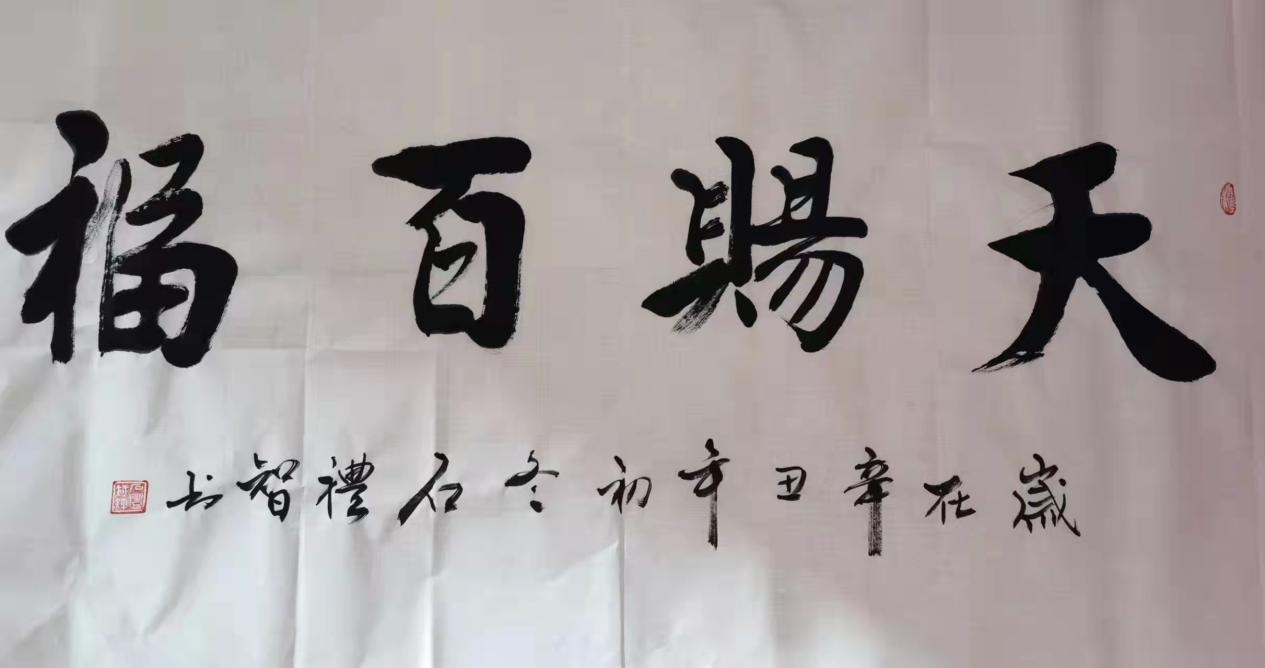 天賜百福
歲在辛丑年初冬石禮智书